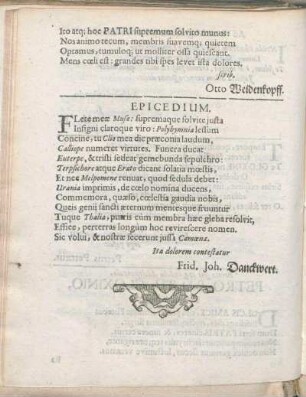 Ito atq; hoc PATRI supremum solvito munus:
Nos animo tecum, membris suavemq; quietem
Optamus, tumuloq; ut molliter ossa quiescant.
Mens cœli est: grandes tibi spes levet ista dolores.
scrib.
Otto Weldenkopff.
EPICEDIUM.
FLete meæ Musæ: supremaque solvite justa
Insigni claroque viro: Polyhymnia lessum
Concine, tu Clio mea dic præconia laudum,
Calliope numeret virtutes. Funera ducat
Euterpe, & tristi sedeat gemebunda sepulchro:
Terpsichore atque Erato dicant solatia mœstis,
Et nec Melpomene veniat, quod sedula debet:
Urania imprimis, de cœlo nomina ducens,
Commemora, quæso, cœlestia gaudia nobis,
Queis genii sancti æternum mentesque fruuntur
Tuque Thalia, putris cùm membra hæc gleba resolvit,
Effice, perterras longùm hoc revirescere nomen.
Sic volui, & nostræ fecerunt jussa Camœnæ.
Ita dolorem contestatur
Frid. Joh. Danckwert.